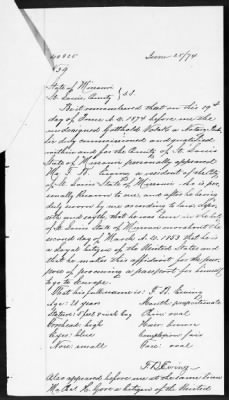 40925 June 25/74
59
State of Missouri
St. Louis County } S.S.
Be it remembered that on this 19th
day of June A.D. 1874 before me the
undersigned Gotthold a Notary Pub-
lic duly commissioned and qualified
within and for the County of St. Louis
State of Missouri personally appeared
Mr. F. D. Ewing a resident of the City
of St. Louis State of Missouri who is per-
sonally known to me and after he having
duly sworn by me according to law, depo-
seth and sayeth, that he was born in the City
of St. Louis State of Missouri on or about the
second day of March A.D. 1853 that he is
a loyal citizen of the United States and
that he makes this affidavit for the pur-
pose of procuring a passport for himself
to go to Europe.
That his full name is: F. D. Ewing
Age: 21 years Mouth: proportionate
Stature: 5 feet inch Eng Chin: oval
Forehead: high Hair: brown
Eyes: blue Complexion: fair
Nose: small Face: oval
F D Ewing
Also appeared before me at the same time
Mr. H. Gore a citizen of the United